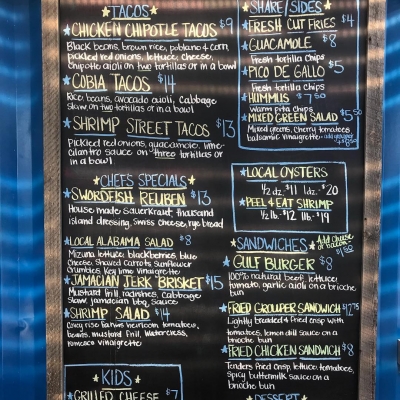 TACOS
CHICKEN CHIPOTLE TACOS $9
Black beans, brown rice, poblano & corn,
pickled red onions, lettuce, cheese,
Chipotle aioli on two tortillas or in a bowl
COBIA TACOS $14
Rice, beans, avocado aioli, cabbage
slaw on two tortillas or in a bowl
SHRIMP STREET TACOS $13
Pickled red onions, guacamole, lime-
cilantro sauce on three tortillas or
in a bowl
CHEF'S SPECIALS
SWORDFISH REUBEN $13
House made sauerkraut, thousand
island dressing, Swiss cheese, rye bread
LOCAL ALABAMA SALAD $8
Mizuna lettuce, blackberries, blue
Cheese, Shaved Carrots, Sunflower
Crumbles, Key lime Vinaigrette
JAMACIAN JERK BRISKET $15
Mustard frill, radishes, Cabbage
Slaw, jamaican bbq Sauce
SHRIMP SALAD $14
rise farms heirloom tomatoes,
beans, mustard frill, watercress,
vinaigrette
KIDS
GRILLED CHEESE $7
SHARE/SIDES
FRESH CUT FRIES $4
GUACAMOLE $8
Fresh tortilla Chips
PICO DE GALLO $5
Fresh tortilla chips
HUMMUS $7.50
Warm pita Chips
MIXED GREEN SALAD $5.50
Mixed greens, Cherry tomatoes
balsamic vinaigrette
LOCAL OYSTERS
1/2 dz. $11 1 dz. $20
PEEL & EAT SHRIMP
1/2 lb. $12 lb. $19
SANDWICHES
Add cheese
or bacon
GULF BURGER $8
100% natural beef, lettuce,
tomato, garlic aioli on a brioche
bun
FRIED GROUPER SANDWICH $12.75
Lightly breaded & fried crisp with
tomatoes, lemon dill sauce on a
brioche bun
FRIED CHICKEN SANDWICH $8
Tenders fried crisp, lettuce, tomatoes,
spicy buttermilk sauce on a
brioche bun
DESSERT